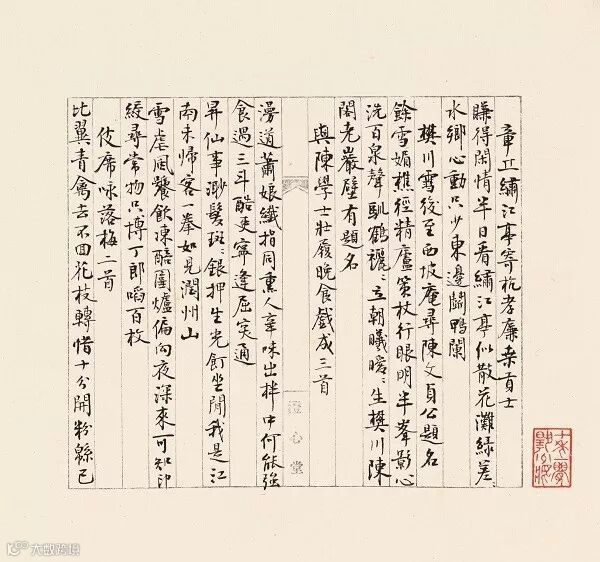 章丘繡江亭寄杭孝廉桑貢士
賺得閑情半日看繡江亭似散花灘綠差〻
水鄉心動只少東邊鬪鴨闌
樊川雪後至西坡庵尋陳文貞公題名
餘雪媚樵徑精廬策杖行眼明半峯影心
洗百泉聲馴鶴襹〻立朝曦暖〻生樊川陳
閣老巖壁有題名
與陳學士壯履晚食戲成三首
漫道蕭娘纖指同熏人辛味出拌中何能強
食過三斗酷更寧逢屈突通
昇仙事渺鬢斑〻銀押生光飣坐間我是江
南未歸客一拳如見潤州山
雪虐風饕飲凍醅圍爐偏向夜深來可知印
綬尋常物只博丁郎啗百枚
伎席咏落梅二首
比翼青禽去不回花枝轉惜十分開粉緜已
澄心堂
大數跨境